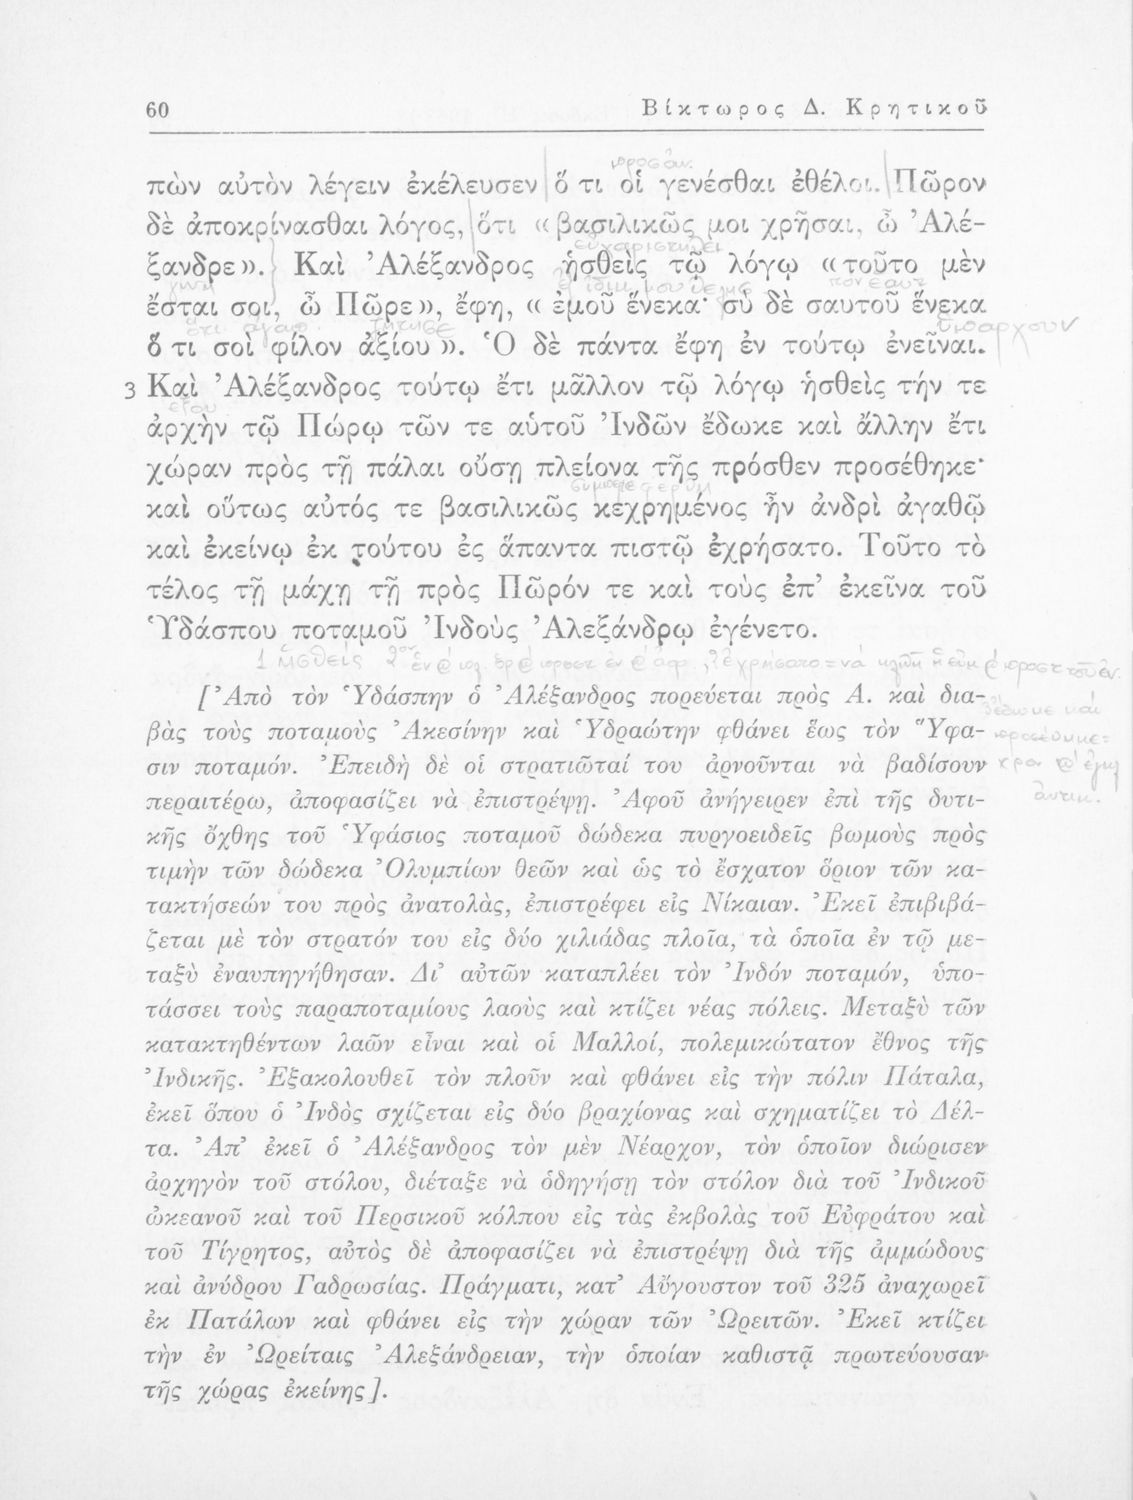 60 Βίκτωρος Δ. Κρητικοῦ
πὼν αὐτὸν λέγειν ἐκέλευσεν ὅ τι οἱ γενέσθαι ἐθέλοι. Πῶρον
δὲ ἀποκρίνασθαι λόγος, ὅτι «βασιλικῶς μοι χρῆσαι, ὦ Ἀλέ-
ξανδρε». Καὶ Ἀλέξανδρος ἡσθεὶς τῷ λόγῳ «τοῦτο μὲν
ἔσται σοι, ὦ Πῶρε», ἔφη, «ἐμοῦ ἕνεκα· σὺ δὲ σαυτοῦ ἕνεκα
ὅ τι σοὶ φίλον ἀξίου». Ὁ δὲ πάντα ἔφη ἐν τούτῳ ἐνεῖναι.
3 Καὶ Ἀλέξανδρος τούτῳ ἔτι μᾶλλον τῷ λόγῳ ἡσθεὶς τήν τε
ἀρχὴν τῷ Πώρῳ τῶν τε αὐτοῦ Ἰνδῶν ἔδωκε καὶ ἄλλην ἔτι
χώραν πρὸς τῇ πάλαι οὔσῃ πλείονα τῆς πρόσθεν προσέθηκε·
καὶ οὕτως αὐτός τε βασιλικῶς κεχρημένος ἦν ἀνδρὶ ἀγαθῷ
καὶ ἐκείνῳ ἐκ τούτου ἐς ἅπαντα πιστῷ ἐχρήσατο. Τοῦτο τὸ
τέλος τῇ μάχῃ τῇ πρὸς Πῶρόν τε καὶ τοὺς ἐπ' ἐκεῖνα τοῦ
Ὑδάσπου ποταμοῦ Ἰνδοὺς Ἀλεξάνδρῳ ἐγένετο.
[Ἀπὸ τὸν Ὑδάσπην ὁ Ἀλέξανδρος πορεύεται πρὸς Α. καὶ δια-
βὰς τοὺς ποταμοὺς Ἀκεσίνην καὶ Ὑδραώτην φθάνει ἕως τὸν Ὕφα-
σιν ποταμόν. Ἐπειδὴ δὲ οἱ στρατιῶταί του ἀρνοῦνται νὰ βαδίσουν
περαιτέρω, ἀποφασίζει νὰ ἐπιστρέψῃ. Ἀφοῦ ἀνήγειρεν ἐπὶ τῆς δυτι-
κῆς ὄχθης τοῦ Ὑφάσιος ποταμοῦ δώδεκα πυργοειδεῖς βωμοὺς πρὸς
τιμὴν τῶν δώδεκα Ὀλυμπίων θεῶν καὶ ὡς τὸ ἔσχατον ὅριον τῶν κα-
τακτήσεών του πρὸς ἀνατολάς, ἐπιστρέφει εἰς Νίκαιαν. Ἐκεῖ ἐπιβιβά-
ζεται μὲ τὸν στρατόν του εἰς δύο χιλιάδας πλοῖα, τὰ ὁποῖα ἐν τῷ με-
ταξὺ ἐναυπηγήθησαν. Δι' αὐτῶν καταπλέει τὸν Ἰνδόν ποταμόν, ὑπο-
τάσσει τοὺς παραποταμίους λαοὺς καὶ κτίζει νέας πόλεις. Μεταξὺ τῶν
κατακτηθέντων λαῶν εἶναι καὶ οἱ Μαλλοί, πολεμικώτατον ἔθνος τῆς
Ἰνδικῆς. Ἐξακολουθεῖ τὸν πλοῦν καὶ φθάνει εἰς τὴν πόλιν Πάταλα,
ἐκεῖ ὅπου ὁ Ἰνδὸς σχίζεται εἰς δύο βραχίονας καὶ σχηματίζει τὸ Δέλ-
τα. Ἀπ' ἐκεῖ ὁ Ἀλέξανδρος τὸν μὲν Νέαρχον, τὸν ὁποῖον διώρισεν
ἀρχηγὸν τοῦ στόλου, διέταξε νὰ ὁδηγήσῃ τὸν στόλον διὰ τοῦ Ἰνδικοῦ
ὠκεανοῦ καὶ τοῦ Περσικοῦ κόλπου εἰς τὰς ἐκβολὰς τοῦ Εὐφράτου καὶ
τοῦ Τίγρητος, αὐτὸς δὲ ἀποφασίζει νὰ ἐπιστρέψῃ διὰ τῆς ἀμμώδους
καὶ ἀνύδρου Γαδρωσίας. Πράγματι, κατ' Αὔγουστον τοῦ 325 ἀναχωρεῖ
ἐκ Πατάλων καὶ φθάνει εἰς τὴν χώραν τῶν Ὠρειτῶν. Ἐκεῖ κτίζει
τὴν ἐν Ὠρείταις Ἀλεξάνδρειαν, τὴν ὁποίαν καθιστᾷ πρωτεύουσαν
τῆς χώρας ἐκείνης].